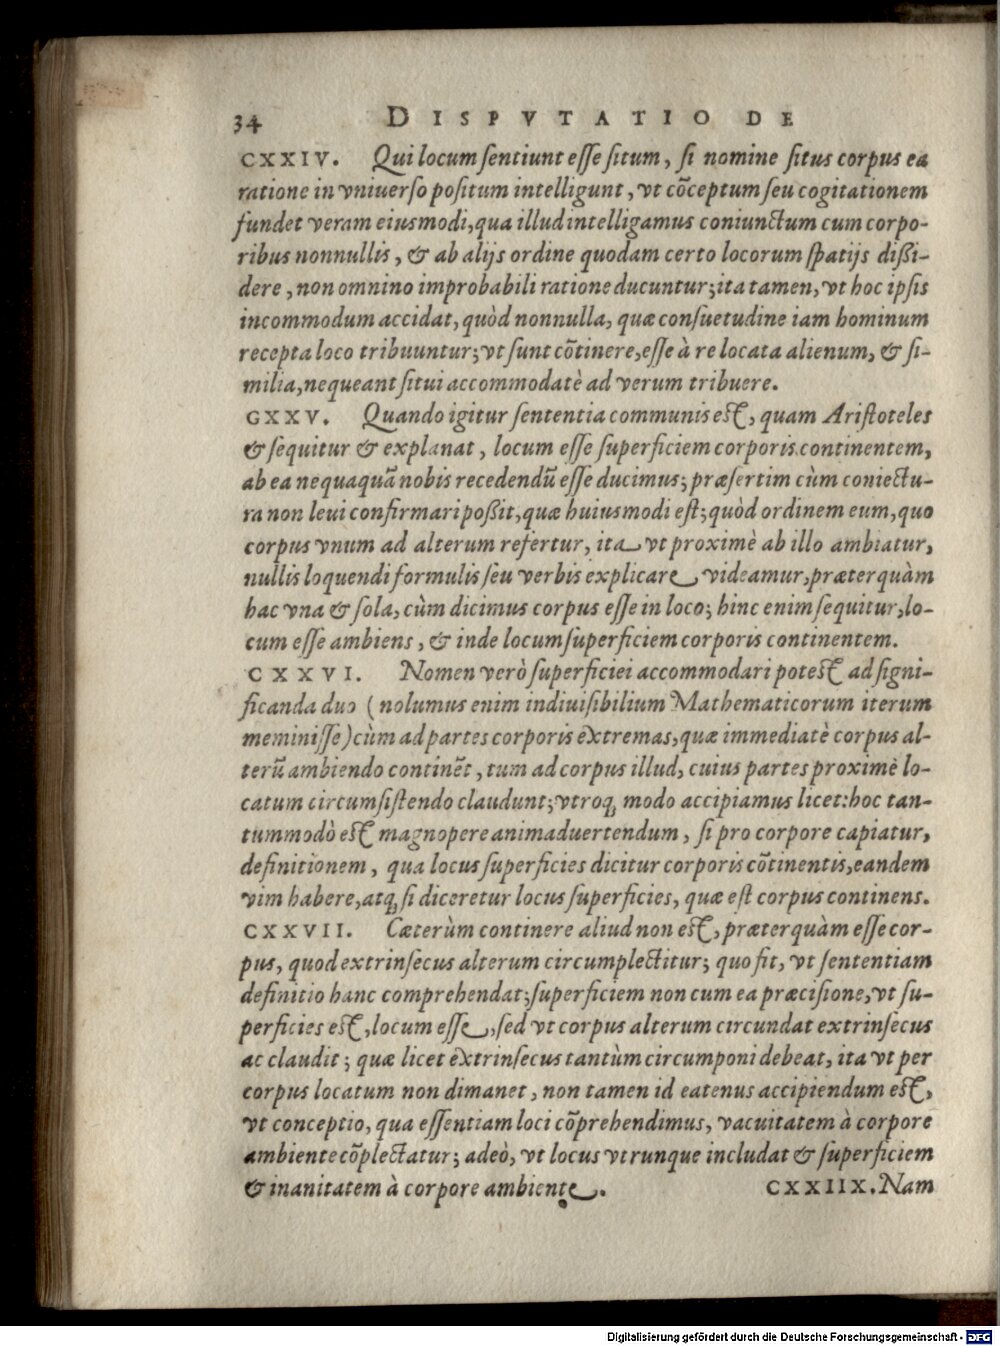 34 DISPVTATIO DE
CXXIV. Qui locum ſentiunt eſſe ſitum, ſi nomine ſitus corpus ea
ratione in vniuerſo poſitum intelligunt, vt cōceptum ſeu cogitationem
fundet veram eiusmodi, qua illud intelligamus coniunctum cum corpo-
ribus nonnullis, & ab alijs ordine quodam certo locorum ſpatijs dißi-
dere, non omnino improbabili ratione ducuntur; ita tamen, vt hoc ipſis
incommodum accidat, quòd nonnulla, quæ conſuetudine iam hominum
recepta loco tribuuntur; vt ſunt cōtinere, eſſe à re locata alienum, & ſi-
milia, nequeant ſitui accommodatè ad verum tribuere.
GXXV. Quando igitur ſententia communis eſt, quam Ariſtoteles
& ſequitur & explanat, locum eſſe ſuperficiem corporis continentem,
ab ea nequaquā nobis recedendū eſſe ducimus; præſertim cùm coniectu-
ra non leui confirmari poßit, quæ huiusmodi eſt; quòd ordinem eum, quo
corpus vnum ad alterum refertur, ita vt proximè ab illo ambiatur,
nullis loquendi formulis ſeu verbis explicare videamur, præterquàm
hac vna & ſola, cùm dicimus corpus eſſe in loco; hinc enim ſequitur, lo-
cum eſſe ambiens, & inde locum ſuperficiem corporis continentem.
CXXVI. Nomen verò ſuperficiei accommodari poteſt ad ſigni-
ficanda duo (nolumus enim indiuiſibilium Mathematicorum iterum
meminiſſe) cùm ad partes corporis extremas, quæ immediatè corpus al-
terū ambiendo continēt, tum ad corpus illud, cuius partes proximè lo-
catum circumſiſtendo claudunt; vtroq; modo accipiamus licet: hoc tan-
tummodò eſt magnopere animaduertendum, ſi pro corpore capiatur,
definitionem, qua locus ſuperficies dicitur corporis cōtinentis, eandem
vim habere, atq; ſi diceretur locus ſuperficies, quæ eſt corpus continens.
CXXVII. Cæterùm continere aliud non eſt, præterquàm eſſe cor-
pus, quod extrinſecus alterum circumplectitur; quo fit, vt ſententiam
definitio hanc comprehendat; ſuperficiem non cum ea præciſione, vt ſu-
perficies eſt, locum eſſe, ſed vt corpus alterum circundat extrinſecus
ac claudit; quæ licet extrinſecus tantùm circumponi debeat, ita vt per
corpus locatum non dimanet, non tamen id eatenus accipiendum eſt,
vt conceptio, qua eſſentiam loci cōprehendimus, vacuitatem à corpore
ambiente cōplectatur; adeò, vt locus vtrunque includat & ſuperficiem
& inanitatem à corpore ambiente. CXXIIX. Nam
Digitalisierung gefördert durch die Deutsche Forschungsgemeinschaft - DFG